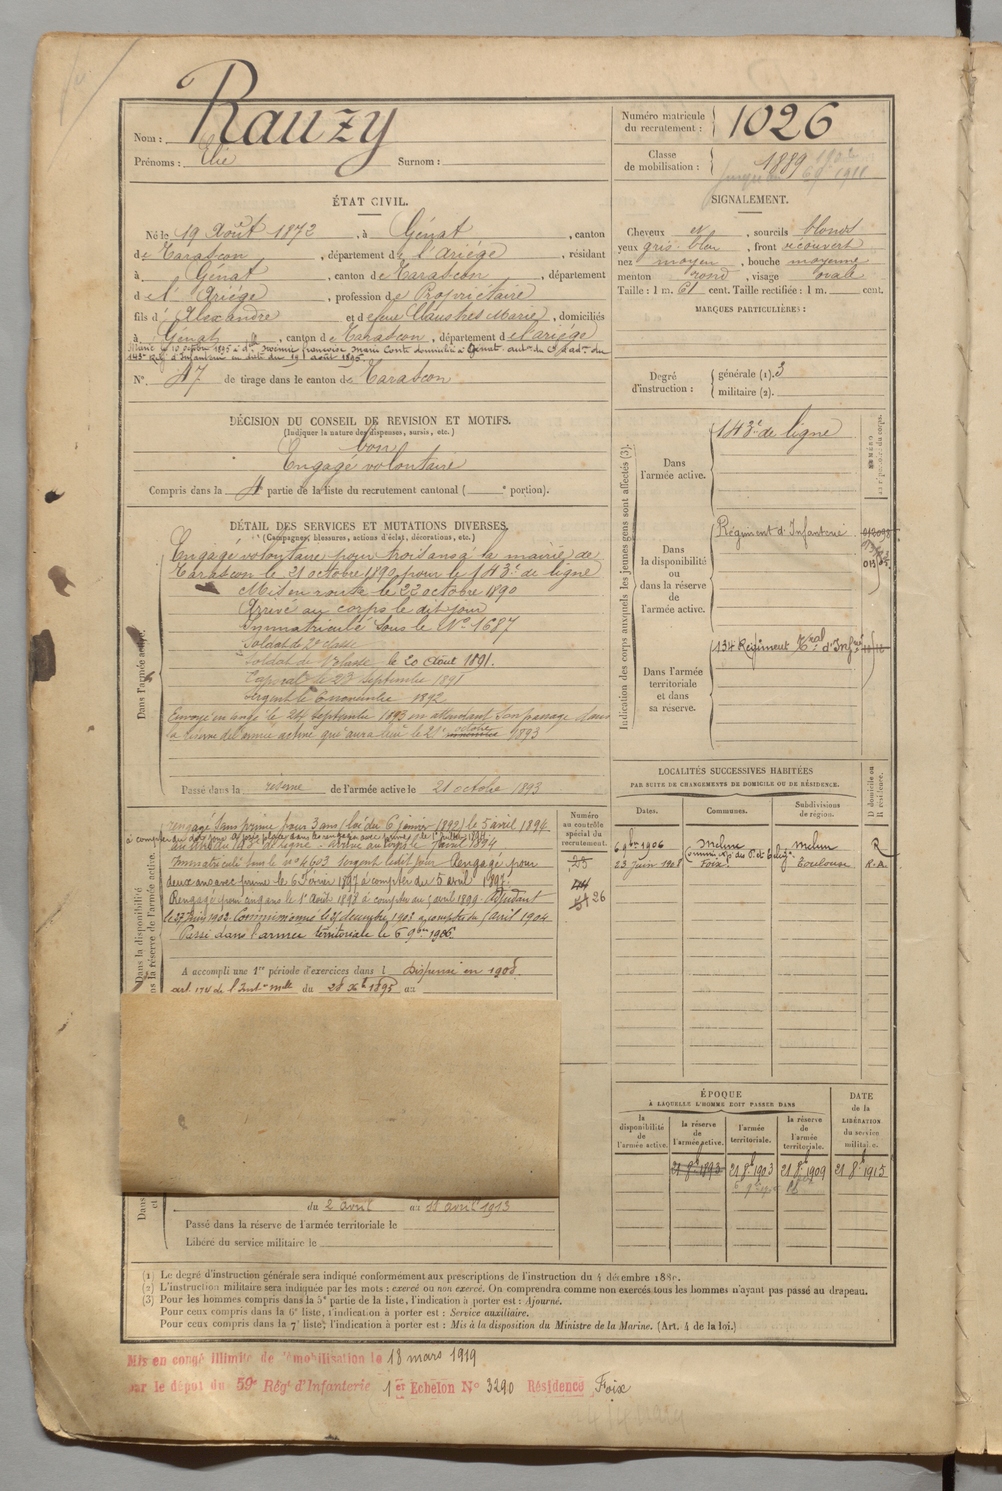 Nom : Rauzy
Prénoms : Elie Surnom :
Numéro matricule du recrutement : 1026
Classe de mobilisation : 1889
ÉTAT CIVIL.
Né le 19 Août 1872, à Génat, canton
de Tarascon, département de l'Ariége, résidant
à Génat, canton de Tarascon, département
de l'Ariége, profession de Propriétaire
fils d'Alexandre et de feue Claustres Marie, domiciliés
à Génat, canton de Tarascon, département de l'ariége
143e Regt d'Infanterie en date du 19 août 1895.
N° 47 de tirage dans le canton de Tarascon
SIGNALEMENT.
Cheveux et, sourcils blonds
yeux gris bleu, front découvert
nez moyen, bouche moyenne
menton rond, visage ovale
Taille : 1 m. 61 cent. Taille rectifiée : 1 m. cent.
MARQUES PARTICULIÈRES :
Degré d'instruction : générale (1). 3
militaire (2).
DÉCISION DU CONSEIL DE REVISION ET MOTIFS.
(Indiquer la nature des dispenses, sursis, etc.)
bon
Engagé volontaire
Compris dans la 4 partie de la liste du recrutement cantonal ( e portion).
DÉTAIL DES SERVICES ET MUTATIONS DIVERSES.
(Campagnes, blessures, actions d'éclat, décorations, etc.)
Dans l'armée active.
Engagé volontaire pour trois ans à la mairie de
Tarascon le 21 octobre 1890 pour le 143e de ligne
Mis en route le 22 octobre 1890
Arrivé au corps le dit jour
Immatriculé sous le N° 1687
Soldat de 2e classe
Soldat de 1e classe le 20 Août 1891.
Caporal le 23 septembre 1891
Sergent le 6 novembre 1892
Envoyé en congé le 24 septembre 1893 en attendant son passage dans
la réserve de l'armée active qui aura lieu le 21 octobre 1893
Passé dans la réserve de l'armée active le 21 octobre 1893
Indication des corps auxquels les jeunes gens sont affectés (3).
Dans l'armée active. 143e de ligne
Dans la disponibilité ou dans la réserve de l'armée active. Régiment d'Infanterie
Dans l'armée territoriale et dans sa réserve. 134 Régiment Tral d'Infrie
LOCALITÉS SUCCESSIVES HABITÉES
PAR SUITE DE CHANGEMENTS DE DOMICILE OU DE RÉSIDENCE.
Dates. Communes. Subdivisions de région. D domicile ou R résidence.
6 9bre 1906 Melun Melun R
23 juin 1908 Foix Toulouse R.A.
Numéro au contrôle spécial du recrutement.
26
Rengagé sans prime pour 3 ans (loi du 6 janvier 1892) le 5 avril 1894
Immatriculé sous le n° 4603 Sergent ledit jour Rengagé pour
deux ans avec prime le 6 Février 1897 à compter du 5 avril 1897.
Rengagé pour cinq ans le 1er Août 1898 à compter du 5 avril 1899 Adjudant
le 27 juin 1902 Commissionné le 27 décembre 1903 à compter du 5 avril 1904
Passé dans l'armée territoriale le 6 9bre 1906.
A accompli une 1re période d'exercices dans l Dispensé en 1908.
du 28 Xbre 1895 au
ÉPOQUE
À LAQUELLE L'HOMME DOIT PASSER DANS
la disponibilité de l'armée active. la réserve de l'armée active. l'armée territoriale. la réserve de l'armée territoriale. DATE de la LIBÉRATION du service militaire.
21 8b 1893 21 8b 1903 21 8b 1909 21 8b 1915
du 2 avril au 18 avril 1913
Passé dans la réserve de l'armée territoriale le
Libéré du service militaire le
(1) Le degré d'instruction générale sera indiqué conformément aux prescriptions de l'instruction du 4 décembre 1889.
(2) L'instruction militaire sera indiquée par les mots : exercé ou non exercé. On comprendra comme non exercés tous les hommes n'ayant pas passé au drapeau.
(3) Pour les hommes compris dans la 5e partie de la liste, l'indication à porter est : Ajourné.
Pour ceux compris dans la 6e liste, l'indication à porter est : Service auxiliaire.
Pour ceux compris dans la 7e liste, l'indication à porter est : Mis à la disposition du Ministre de la Marine. (Art. 4 de la loi.)
Mis en congé illimité de démobilisation le 18 mars 1919
par le dépôt du 59e Régt d'Infanterie 1er Echelon N° 3290 Résidence Foix